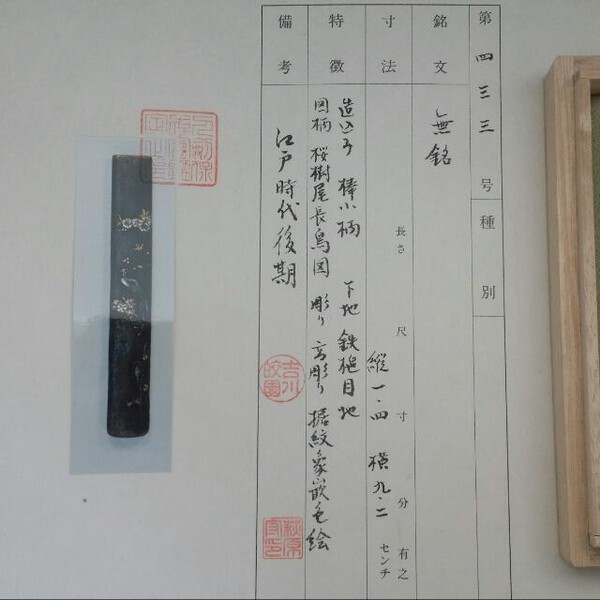 第四三三号 種別
銘文 無銘
寸法 長さ 尺 寸 分 有之
縦一・四 横九・二 センチ
特徴 造込み 棒小柄 下地 鉄槌目地
図柄 桜樹尾長鳥図 彫り 高彫り 据紋象嵌色絵
備考 江戸時代後期
吉川皎園
萩原